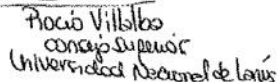 Rocío Villalba
consejo Superior
Universidad Nacional de Lanús